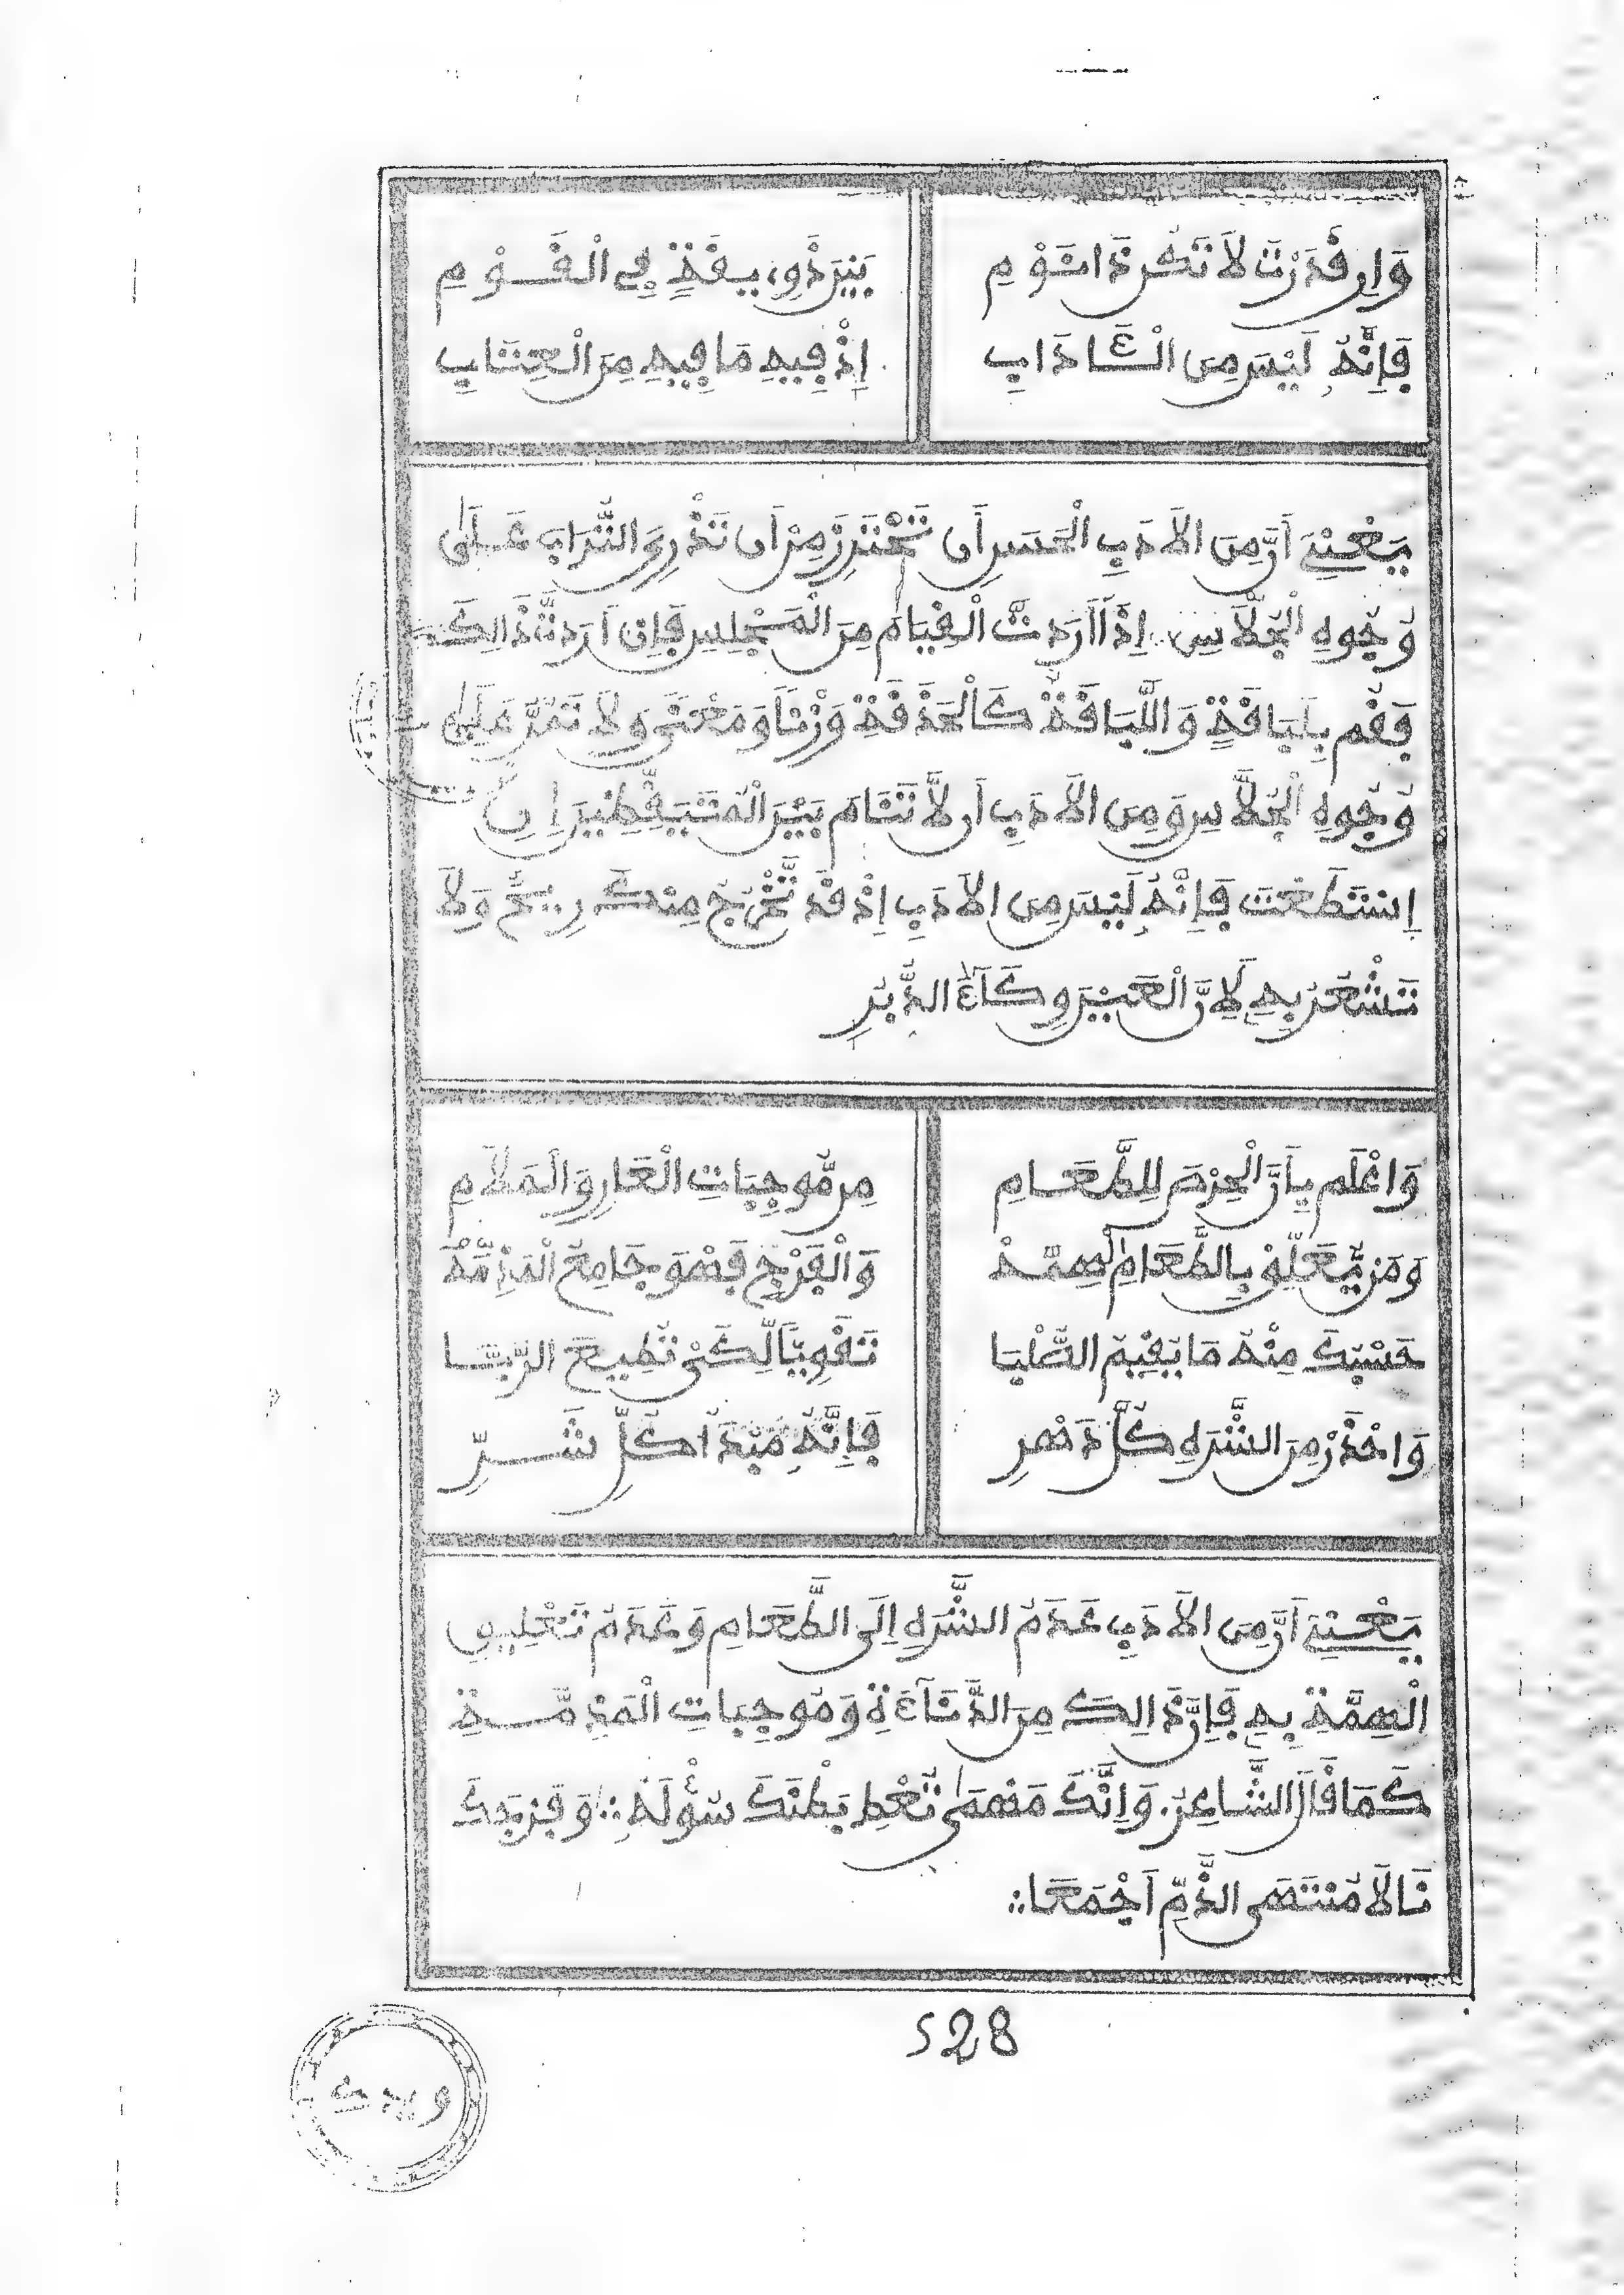 وَإِن قَدَرْتَ لَا تَكُن ذَا نَوْمِ بَيْنَ ذَوِي يَقَظَةٍ فِي الْقَوْمِ
فَإِنَّهُ لَيْسَ مِنَ الْآدَابِ إِذْ فِيهِ مَا فِيهِ مِنَ الْعِتَابِ
يَعْنِي أَنَّ مِنَ الْأَدَبِ الْحَسَنِ أَن تَحْتَرِزَ مِنْ أَن تَذْرِيَ التُّرَابَ عَلَى
وُجُوهِ الْجُلَّاسِ إِذَا أَرَدتَّ الْقِيَامَ مِنَ الْمَجْلِسِ فَإِنْ أَرَدتَّ ذَالِكَ
فَقُم بِلَبَاقَةٍ وَاللَّبَاقَةُ كَالْحَذَقَةِ وَزْنًا وَمَعْنًى وَلَا تَمُرَّ عَلَى
وُجُوهِ الْجُلَّاسِ وَمِنَ الْأَدَبِ أَن لَّا تَنَامَ بَيْنَ الْمُتَيَقِّظِينَ إِنِ
إِسْتَطَعْتَ فَإِنَّهُ لَيْسَ مِنَ الْأَدَبِ إِذْ قَدْ تَّخْرُجُ مِنْكَ رِيحٌ وَلَا
تَشْعُرُ بِهِ لِأَنَّ الْعَيْنَ وِكَآءُ الدُّبُرِ
وَاعْلَم بِأَنَّ الْحِرْصَ لِلطَّعَامِ مِن مُّوجِبَاتِ الْعَارِ وَالْمَلَامِ
وَمَن يُّعَلِّقْ بِالطَّعَامِ الْهِمَّهْ وَالْفَرْجِ فَهْوَ جَامِعُ الْمَذِمَّهْ
حَسْبُكَ مِنْهُ مَا يُقِيمُ الصُّلْبَا تَقَوِّيًا لِكَيْ تُطِيعَ الرَّبَّا
وَاحْذَرْ مِنَ الشَّرَهِ كُلَّ دَهْرِ فَإِنَّهُ مَبْدَأُ كُلِّ شَرِّ
يَعْنِي أَنَّ مِنَ الْأَدَبِ عَدَمُ الشَّرَهِ إِلَى الطَّعَامِ وَعَدَمُ تَعْلِيقِ
الْهِمَّةِ بِهِ فَإِنَّ ذَالِكَ مِنَ الدَّنَآءَةِ وَمُوجِبَاتِ الْمَذِمَّةِ
كَمَا قَالَ الشَّاعِرُ. وَإِنَّكَ مَهْمَى تُعْطِ بَطْنَكَ سُؤْلَهُ ∴ وَفَرْجَكَ
نَالَا مُنْتَهَى الذَّمِّ أَجْمَعَا ∴
528